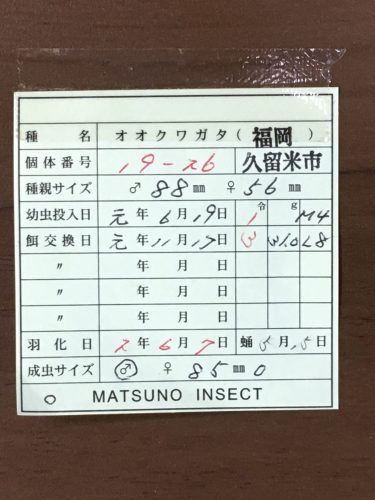 種 名 オオクワガタ(福岡)
個体番号 19-26 久留米市
種親サイズ ♂88mm ♀56mm
幼虫投入日 元年6月19日 1令 g M4
餌交換日 元年11月17日 3 31.0 L8
〃 年 月 日
〃 年 月 日
〃 年 月 日
羽化日 2年6月7日 蛹5月15日
成虫サイズ ♂ ♀ 85mm0
MATSUNO INSECT